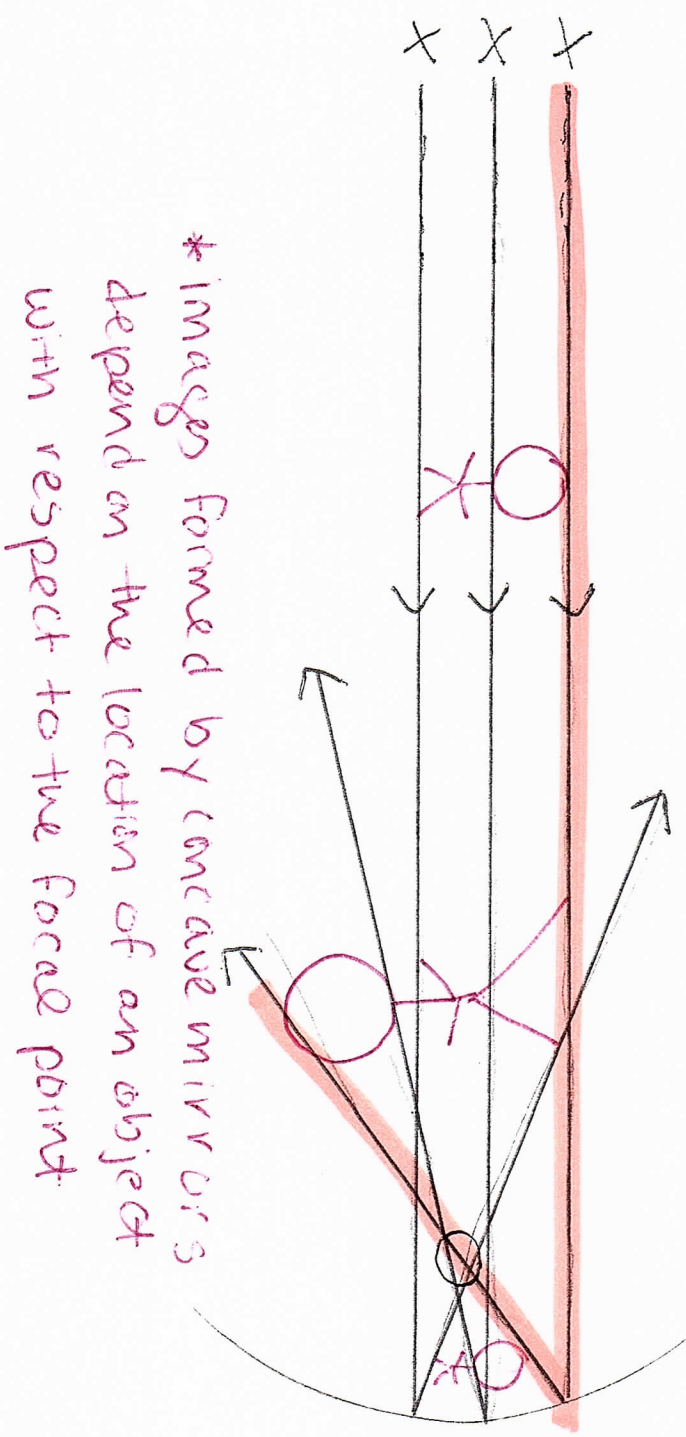 X X X
* images formed by concave mirrors
depend on the location of an object
with respect to the focal point